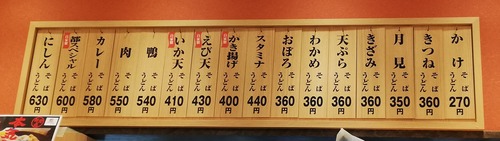 かけ そば うどん 270円
きつね そば うどん 360円
月見 そば うどん 350円
きざみ そば うどん 360円
天ぷら そば うどん 360円
わかめ そば うどん 360円
おぼろ そば うどん 360円
スタミナ そば うどん 440円
かき揚げ そば うどん 400円
えび天 そば うどん 430円
いか天 そば うどん 410円
鴨 そば うどん 540円
肉 そば うどん 550円
カレー そば うどん 580円
都スペシャル そば うどん 600円
にしん そば うどん 630円